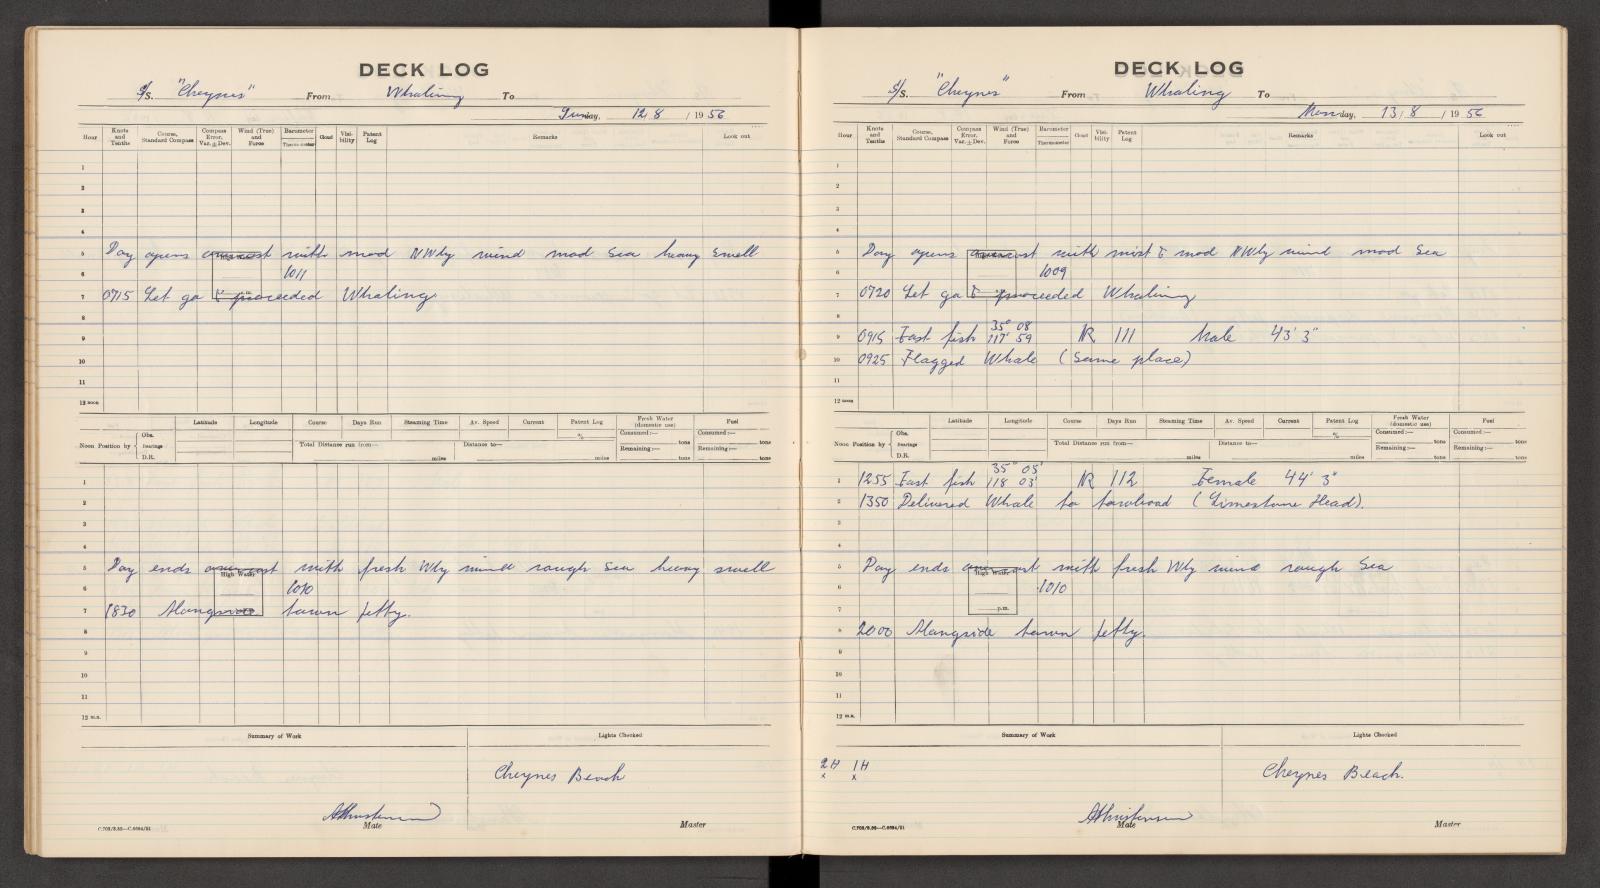 DECK LOG
S/S. "Cheynes" From Whaling To
Sunday, 12/8/1956
Hour Knots and Tenths Course, Standard Compass Compass Error. Var. ± Dev. Wind (True) and Force Barometer Thermometer Cloud Visibility Patent Log Remarks Look out
1
2
3
4
5 Day opens overcast with mod NWly wind mod sea heavy swell
6 1011
7 0715 Let go & proceeded Whaling
8
9
10
11
12 noon
Noon Position by Obs. Bearings D.R. Latitude Longitude Course Days Run Steaming Time Av. Speed Current Patent Log % Fresh Water (domestic use) Fuel
Total Distance run from— miles Distance to— miles Consumed:— tons Remaining:— tons Consumed:— tons Remaining:— tons
1
2
3
4
5 Day ends overcast with fresh Wly wind rough sea heavy swell
High Water
6 1010
7 1830 Alongside town jetty.
8
9
10
11
12 m.n.
Summary of Work Lights Checked
Cheynes Beach
AChristensen
Mate Master
DECK LOG
S/S. "Cheynes" From Whaling To
Monday, 13/8/1956
Hour Knots and Tenths Course, Standard Compass Compass Error. Var. ± Dev. Wind (True) and Force Barometer Thermometer Cloud Visibility Patent Log Remarks Look out
1
2
3
4
5 Day opens overcast with mist & mod NWly wind mod sea
6 1009
7 0720 Let go & proceeded Whaling
8
35° 08
9 0915 Fast fish 117° 59 N 111 Male 43' 3"
10 0925 Flagged Whale (same place)
11
12 noon
Noon Position by Obs. Bearings D.R. Latitude Longitude Course Days Run Steaming Time Av. Speed Current Patent Log % Fresh Water (domestic use) Fuel
Total Distance run from— miles Distance to— miles Consumed:— tons Remaining:— tons Consumed:— tons Remaining:— tons
35° 05'
1 1255 Fast fish 118 03' N 112 Female 44' 3"
2 1350 Delivered Whale to towboat (Limestone Head).
3
4
5 Day ends overcast with fresh Wly wind rough sea
High Water
6 1010
7 p.m.
8 2000 Alongside town jetty.
9
10
11
12 m.n.
Summary of Work Lights Checked
2H 1H
x x
Cheynes Beach.
AChristensen
Mate Master